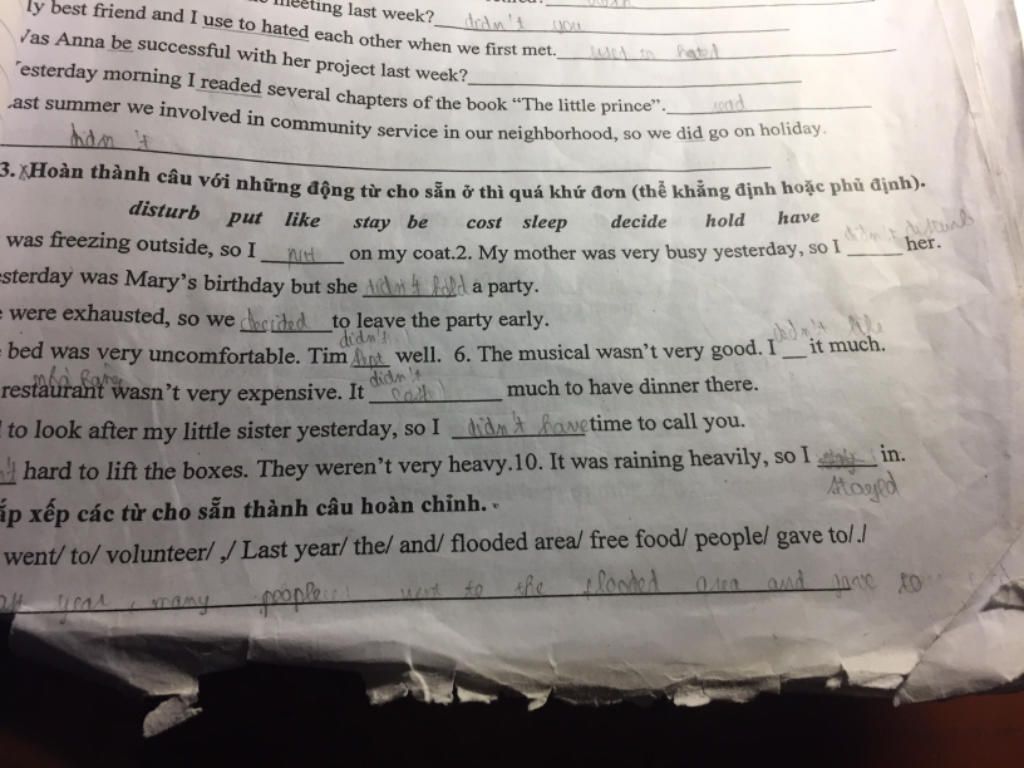 meeting last week? didn't you
ly best friend and I use to hated each other when we first met. used to hated
Vas Anna be successful with her project last week?
esterday morning I readed several chapters of the book “The little prince”. read
ast summer we involved in community service in our neighborhood, so we did go on holiday.
didn't
3. Hoàn thành câu với những động từ cho sẵn ở thì quá khứ đơn (thể khẳng định hoặc phủ định).
disturb put like stay be cost sleep decide hold have
was freezing outside, so I put on my coat.2. My mother was very busy yesterday, so I didn't disturb her.
esterday was Mary's birthday but she didn't hold a party.
were exhausted, so we decided to leave the party early.
bed was very uncomfortable. Tim didn't well. 6. The musical wasn't very good. I didn't it much.
nhà hàng
restaurant wasn't very expensive. It didn't cost much to have dinner there.
to look after my little sister yesterday, so I didn't have time to call you.
hard to lift the boxes. They weren't very heavy.10. It was raining heavily, so I in.
stayed
ắp xếp các từ cho sẵn thành câu hoàn chỉnh.
went/ to/ volunteer/ ,/ Last year/ the/ and/ flooded area/ free food/ people/ gave to/./
year, many people went to the flooded area and gave to